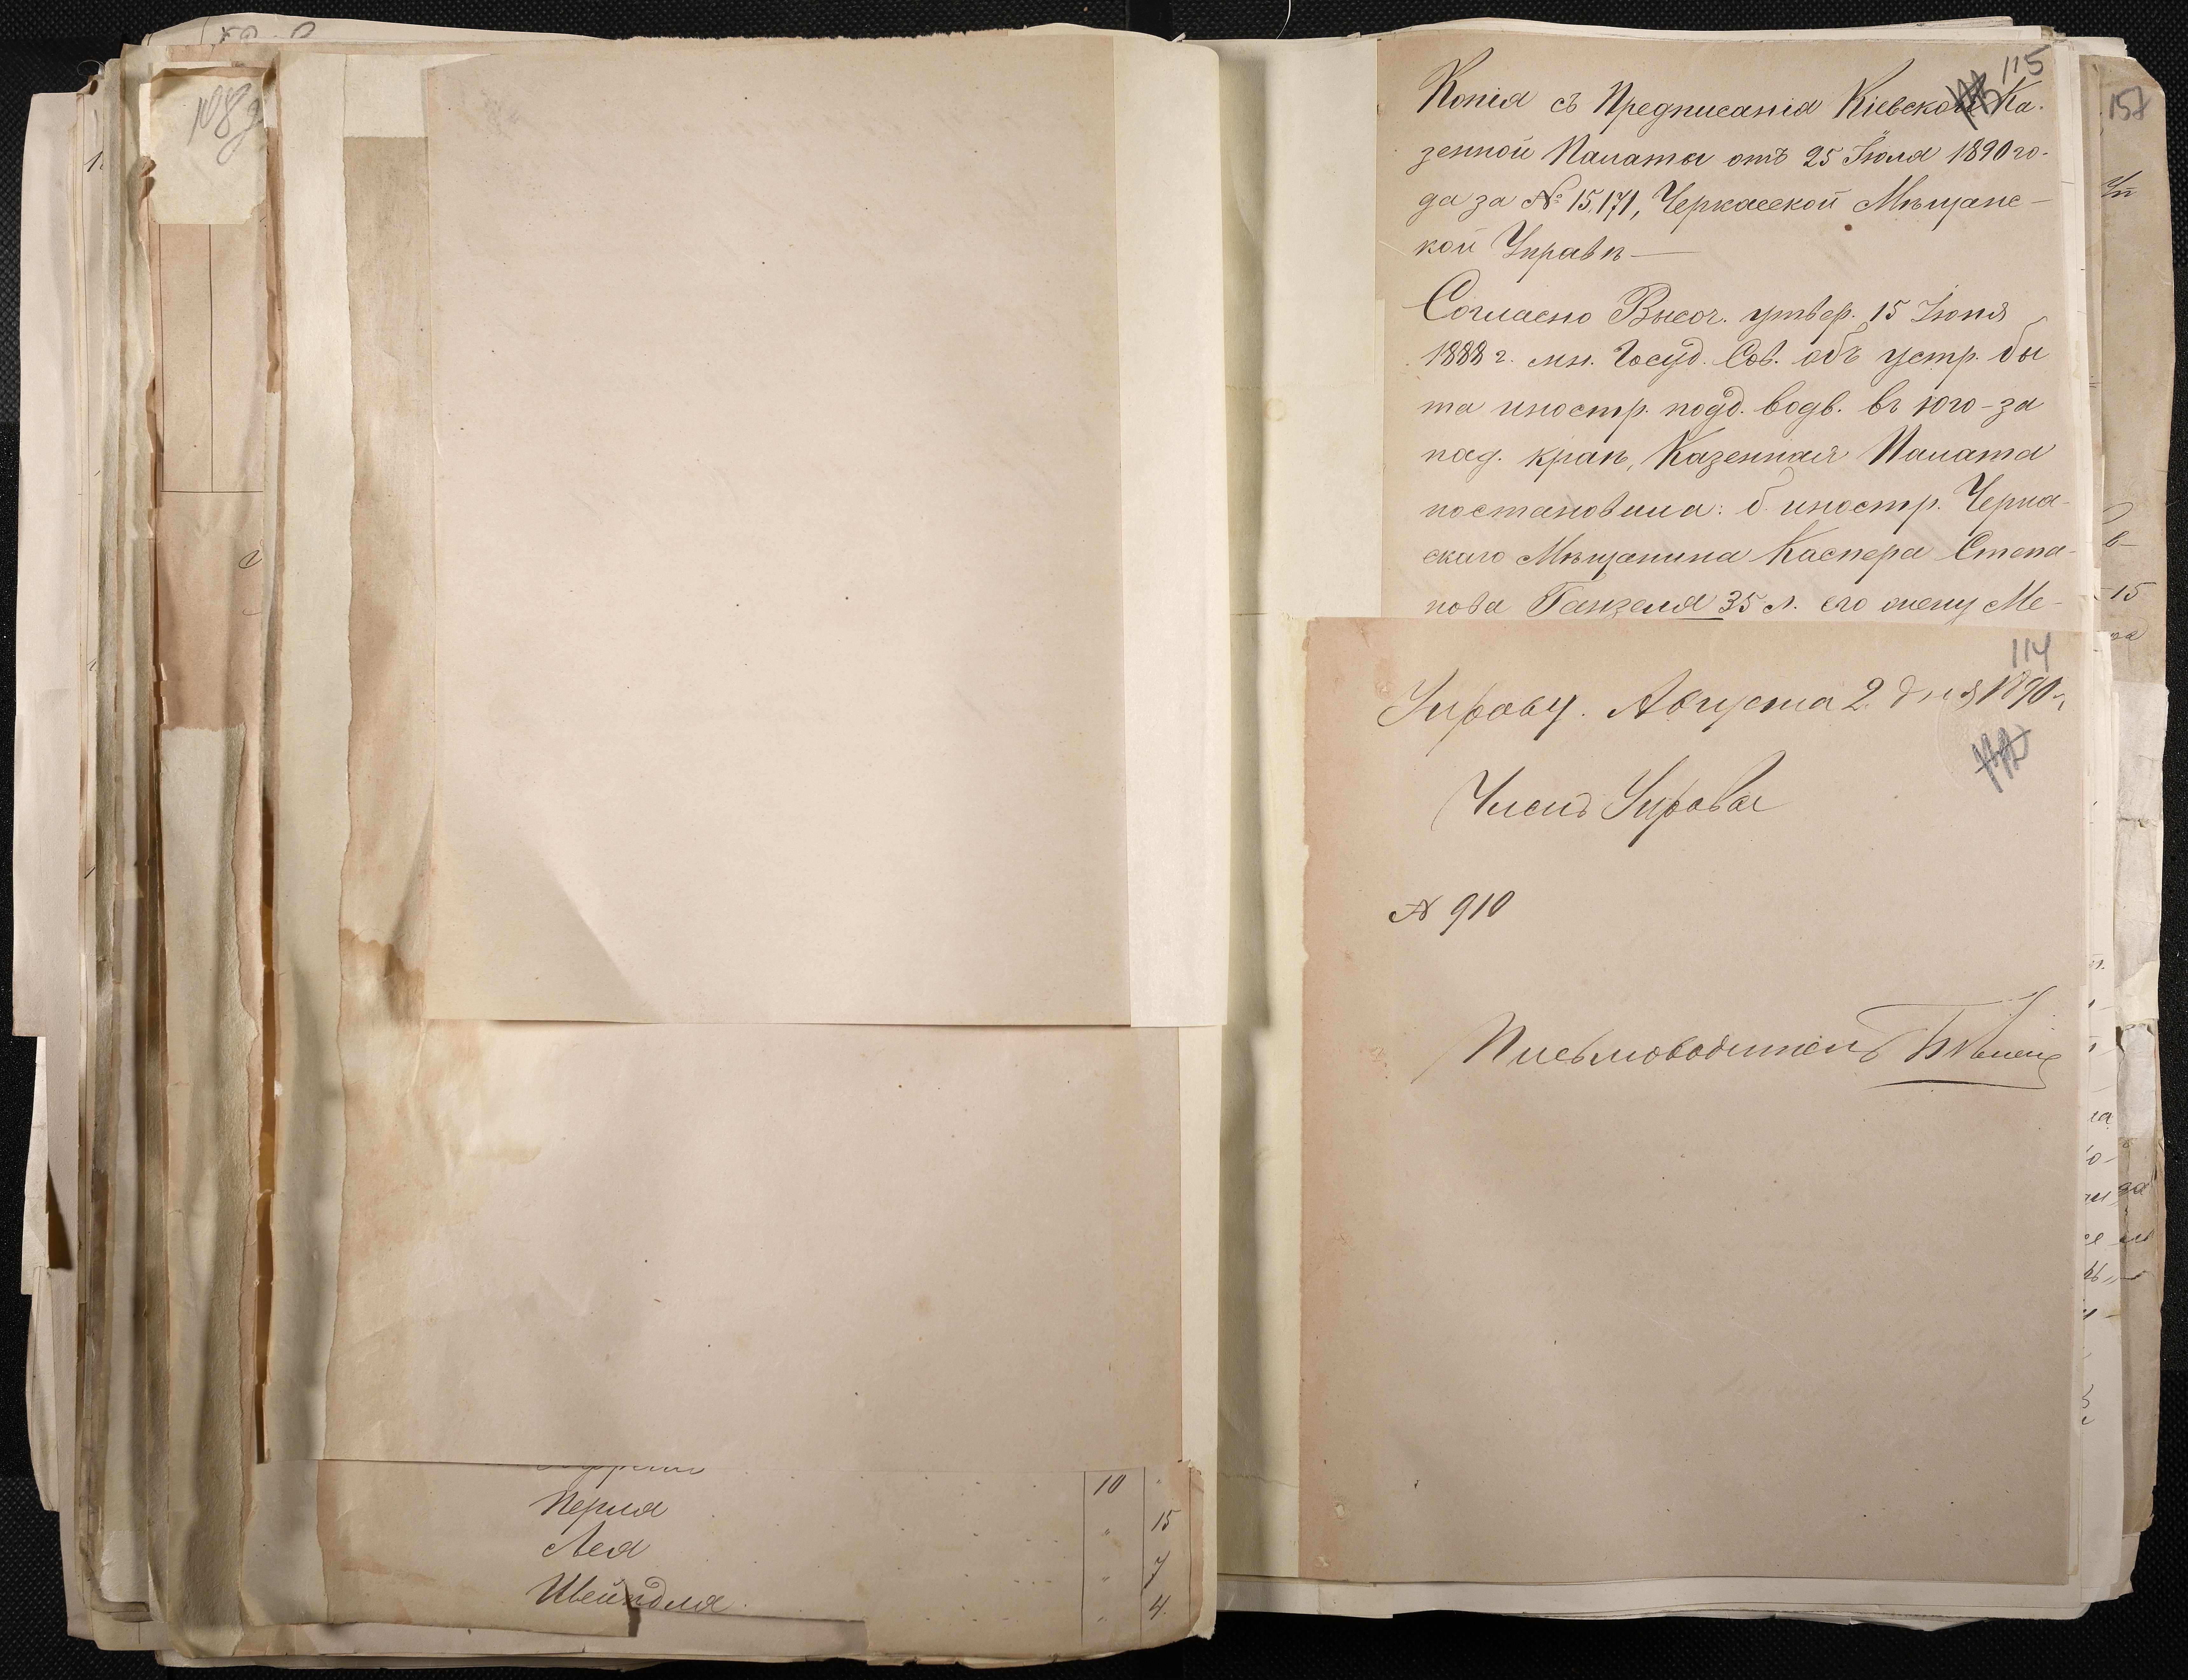 108
10
Перля 15
Лея 7
Швейндля 4
115
Копія съ Предписанія Кіевской Ка-
зенной Палаты отъ 25 Іюля 1890 го-
да за № 15,171, Черкасской Мѣщанс-
кой Управѣ—
Согласно Высоч. утвер. 15 Іюня
1888 г. мн. Госуд. Сов. объ устр. бы
та иностр. подд. водв. въ юго-за
пад. краѣ, Казенная Палата
постановила: б. иностр. Черка-
скаго Мѣщанина Каспера Степа-
нова Ганзеля 35 л. его жену Ме-
114
Управу. Августа 2 дня 1890 г.
Членъ Управы
№ 910
Письмоводитель
157
15